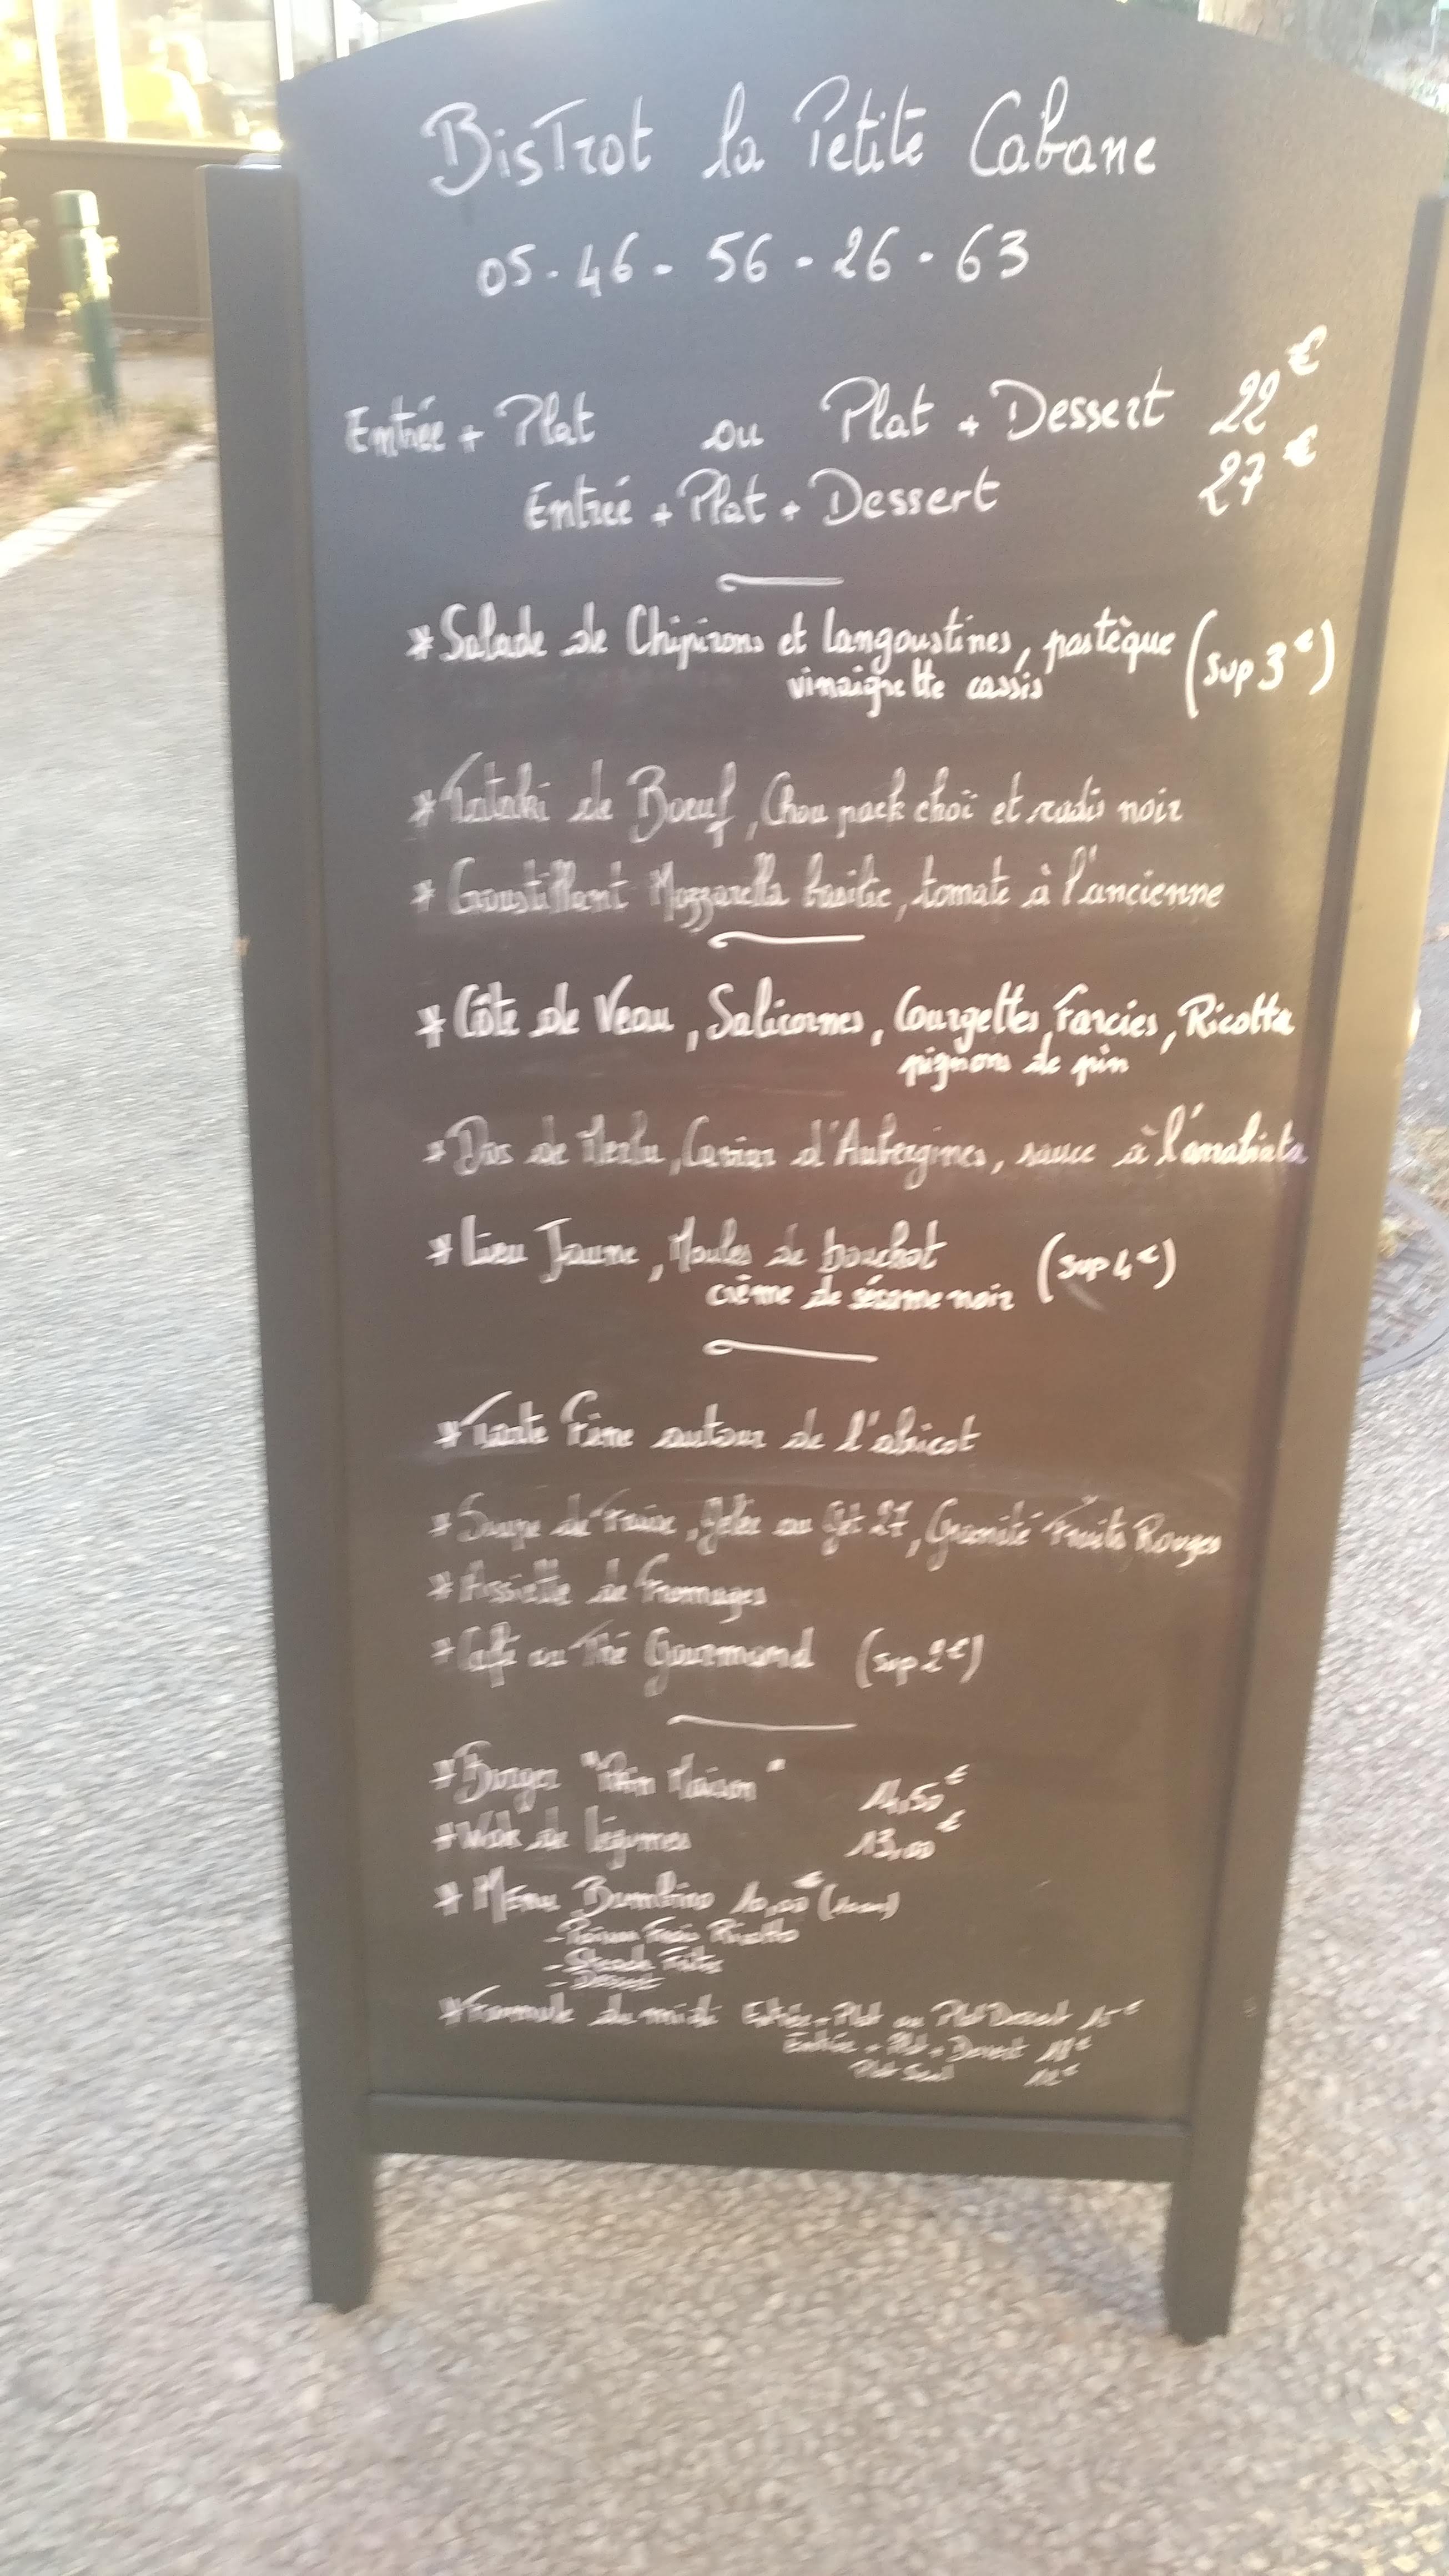 BisTrot la Petite Cabane
05-46-56-26-63
Entrée + Plat ou Plat + Dessert 22€
Entrée + Plat + Dessert 27€
* Salade de Chipirons et langoustines, pastèque (sup 3€)
vinaigrette cassis
* Tataki de Boeuf, Chou pack choï et radis noir
* Croustillant Mozzarella basilic, tomate à l'ancienne
* Côte de Veau, Salicornes, Courgettes Farcies, Ricotta
pignons de pin
* Dos de Merlu, Caviar d'Aubergines, sauce à l'arrabiata
* Lieu Jaune, Moules de bouchot (sup 4€)
crème de sésame noir
* Tarte Fine autour de l'abricot
* Soupe de Fraise, Gelée au Get 27, Granité Fruits Rouges
* Assiette de Fromages
* Café ou Thé Gourmand (sup 2€)
* Burger "Pain Maison" 14,50€
* Wok de légumes 13,00€
* Menu Bambino 10,00€
- Poisson Frais Risotto
- Steack Frites
- Dessert
* Formule du midi Entrée + Plat ou Plat Dessert 15€
Entrée + Plat + Dessert 18€
Plat Seul 12€